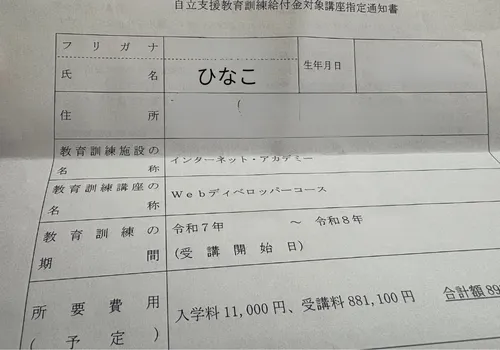 自立支援教育訓練給付金対象講座指定通知書
フリガナ
氏名 ひなこ 生年月日
住所
教育訓練施設の
名称 インターネット・アカデミー
教育訓練講座の
名称 Webディベロッパーコース
教育訓練の
期間 令和7年 ~ 令和8年
(受講開始日)
所要費用
(予定) 入学料 11,000 円、受講料 881,100 円 合計額 89